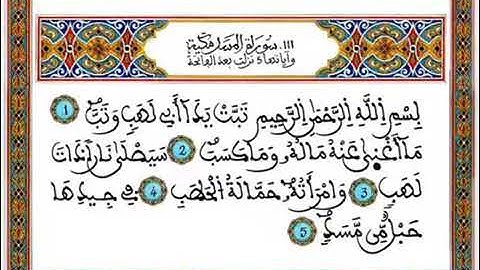 111 سورة المسد مكية
وآياتها 5 نزلت بعد الفاتحة
بِسْمِ اللَّهِ الرَّحْمَٰنِ الرَّحِيمِ تَبَّتْ يَدَا أَبِي لَهَبٍ وَتَبَّ 1
مَا أَغْنَىٰ عَنْهُ مَالُهُ وَمَا كَسَبَ 2 سَيَصْلَىٰ نَارًا ذَاتَ
لَهَبٍ 3 وَامْرَأَتُهُ حَمَّالَةَ الْحَطَبِ 4 فِي جِيدِهَا
حَبْلٌ مِّن مَّسَدٍ 5